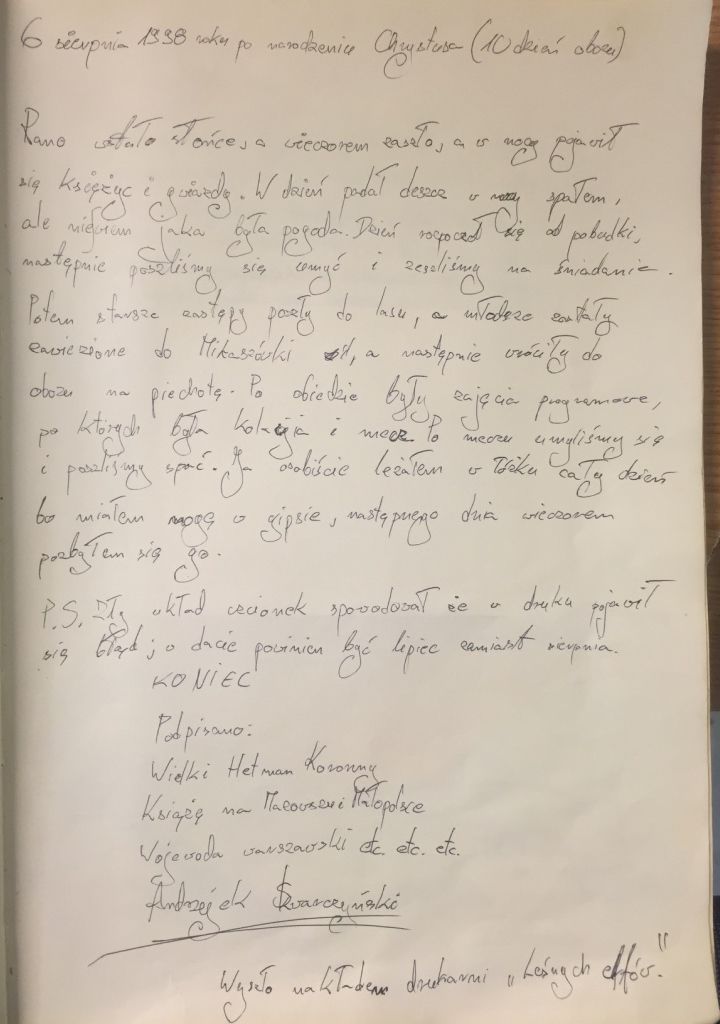 6 sierpnia 1998 roku po narodzenice Chrystusa (10 dzień obozu)
Rano wstało słońce, a wieczorem zaszło, a w nocy pojawił
się księżyc i gwiazdy. W dzień padał deszcz w nocy spałem,
ale niewiem jaka była pogoda. Dzień rozpoczął się od pobudki,
następnie poszliśmy się umyć i zeszliśmy na śniadanie.
Potem starsze zastępy poszły do lasu, a młodsze zostały
zawiezione do Mikaszówki, a następnie wróciły do
obozu na piechotę. Po obiedzie były zajęcia programowe,
po których była kolacja i mecz. Po meczu umyliśmy się
i poszliśmy spać. Ja osobiście leżałem w łóżku cały dzień
bo miałem nogę w gipsie, następnego dnia wieczorem
pozbyłem się go.
P.S. Zły układ czcionek spowodował że w druku pojawił
się błąd; w dacie powinien być lipiec zamiast sierpnia.
KONIEC
Podpisano:
Wielki Hetman Koronny
Książę na Mazowszu i Małopolsce
Wojewoda warszawski etc. etc. etc.
Andrzejek Swarczyński
Wyszło nakładem drukarni „Leśnych elfów."